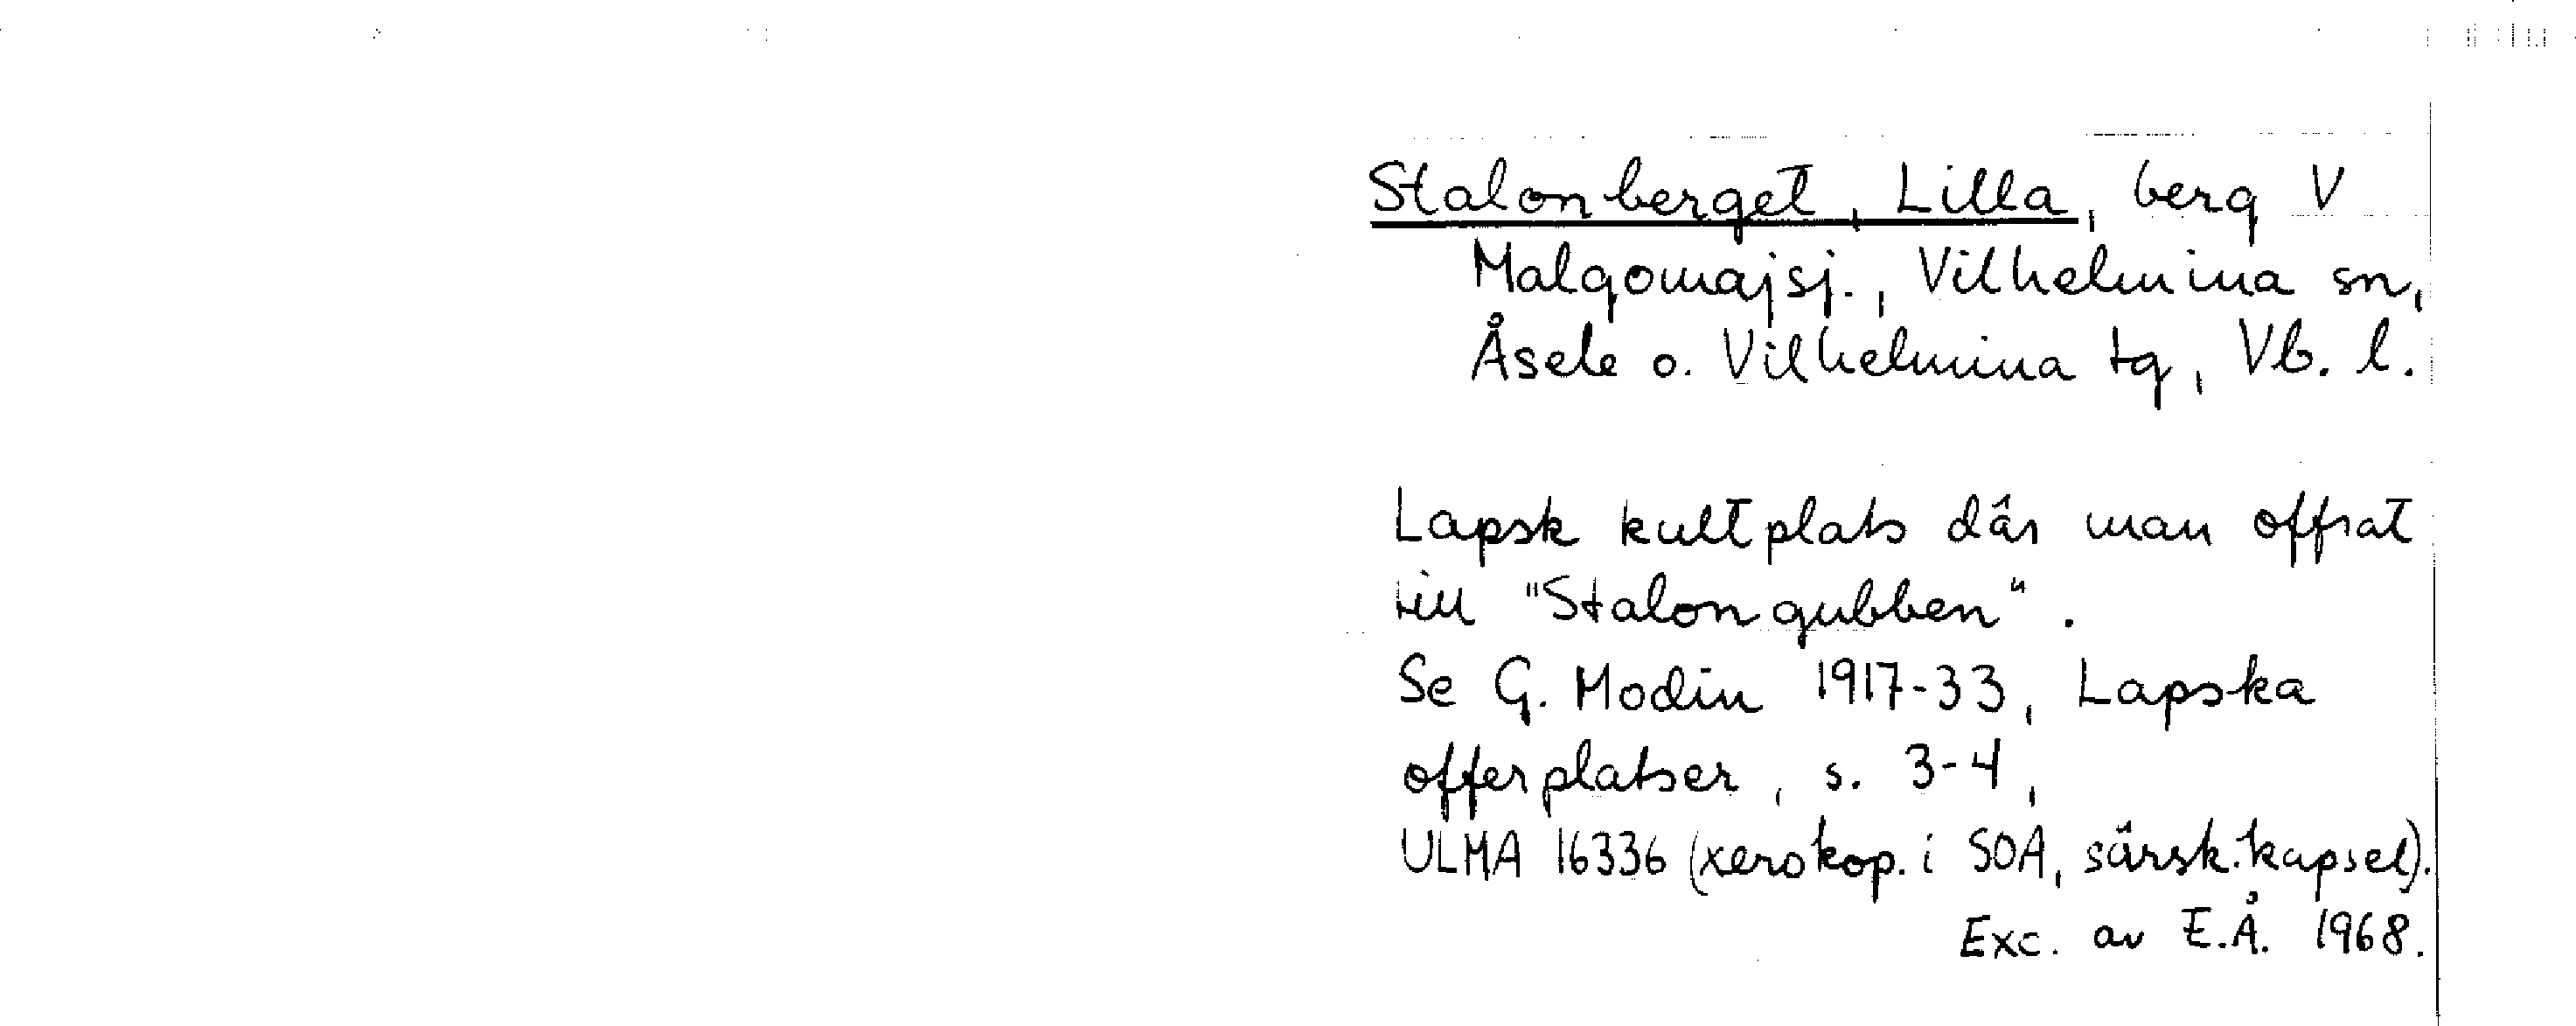 Stalonberget, Lilla, berg V
Malgomajsj., Vilhelmina sn,
Åsele o. Vilhelmina tg, Vb. l.
Lapsk kultplats där man offrat
till "Stalongubben".
Se G. Modin 1917-33, Lapska
offerplatser, s. 3-4,
ULMA 16336 (xerokop. i SOA, särsk. kapsel).
Exc. av E.Å. 1968.